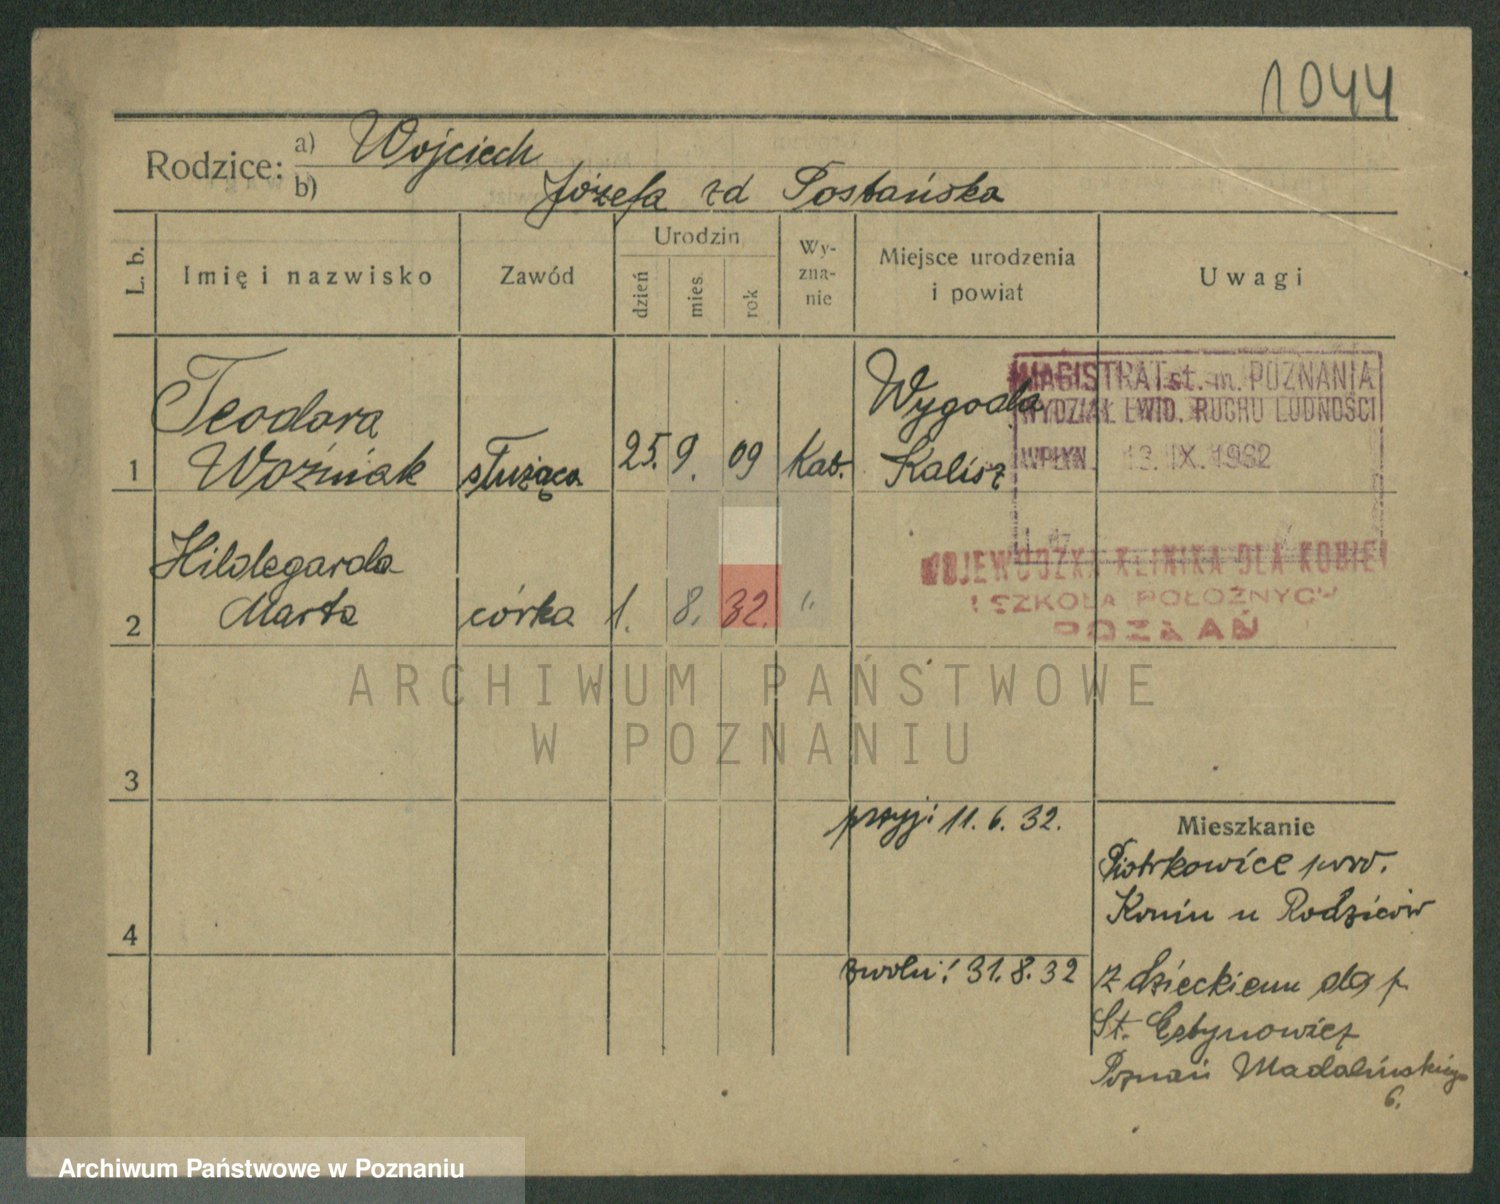 1044
Rodzice: a) Wojciech
b) Józefa zd
L. b.
Imię i nazwisko
Zawód
Urodzin
dzień
mies.
rok
Wy-
zna-
nie
Miejsce urodzenia
i powiat
Uwagi
Teodora
Woźniak
1
służąca
25. 9. 09
Kat.
Wygoda
Kalisz
MAGISTRAT st. m. POZNANIA
WYDZIAŁ EWID. RUCHU LUDNOŚCI
WPŁYN. 13. IX. 1932
WOJEWÓDZKA KLINIKA DLA KOBIET
I SZKOŁA POŁOŻNYCH
POZNAŃ
Hildegarda
Marta
2
córka
1. 8. 32.
"
ARCHIWUM PAŃSTWOWE
W POZNANIU
3
przyj: 11. 6. 32.
Mieszkanie
Piotrkowice pow.
Konin u Rodziców
4
zwoln: 31. 8. 32
z dzieckiem do p.
St.
Poznań Madalińskiego
6.
Archiwum Państwowe w Poznaniu